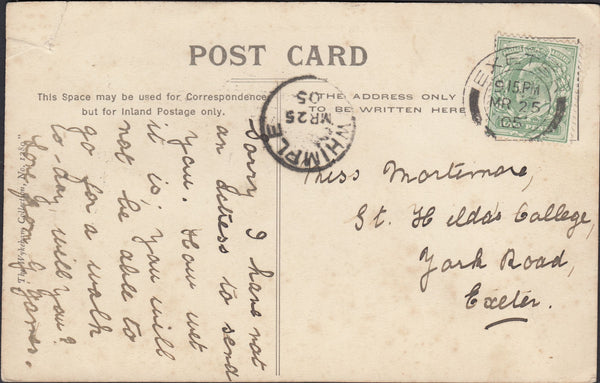 POST CARD
This Space may be used for Correspondence
but for Inland Postage only.
THE ADDRESS ONLY
TO BE WRITTEN HERE
EXETER
9.15 PM
MR 25
05
WHIMPLE
MR 25
05
Sorry I have not
an actress to send
you. How wet
it is, you will
not be able to
go for a walk
to-day, will you?
Love from G. James.
Miss Mortimore,
St. Hilda's College,
York Road,
Exeter.